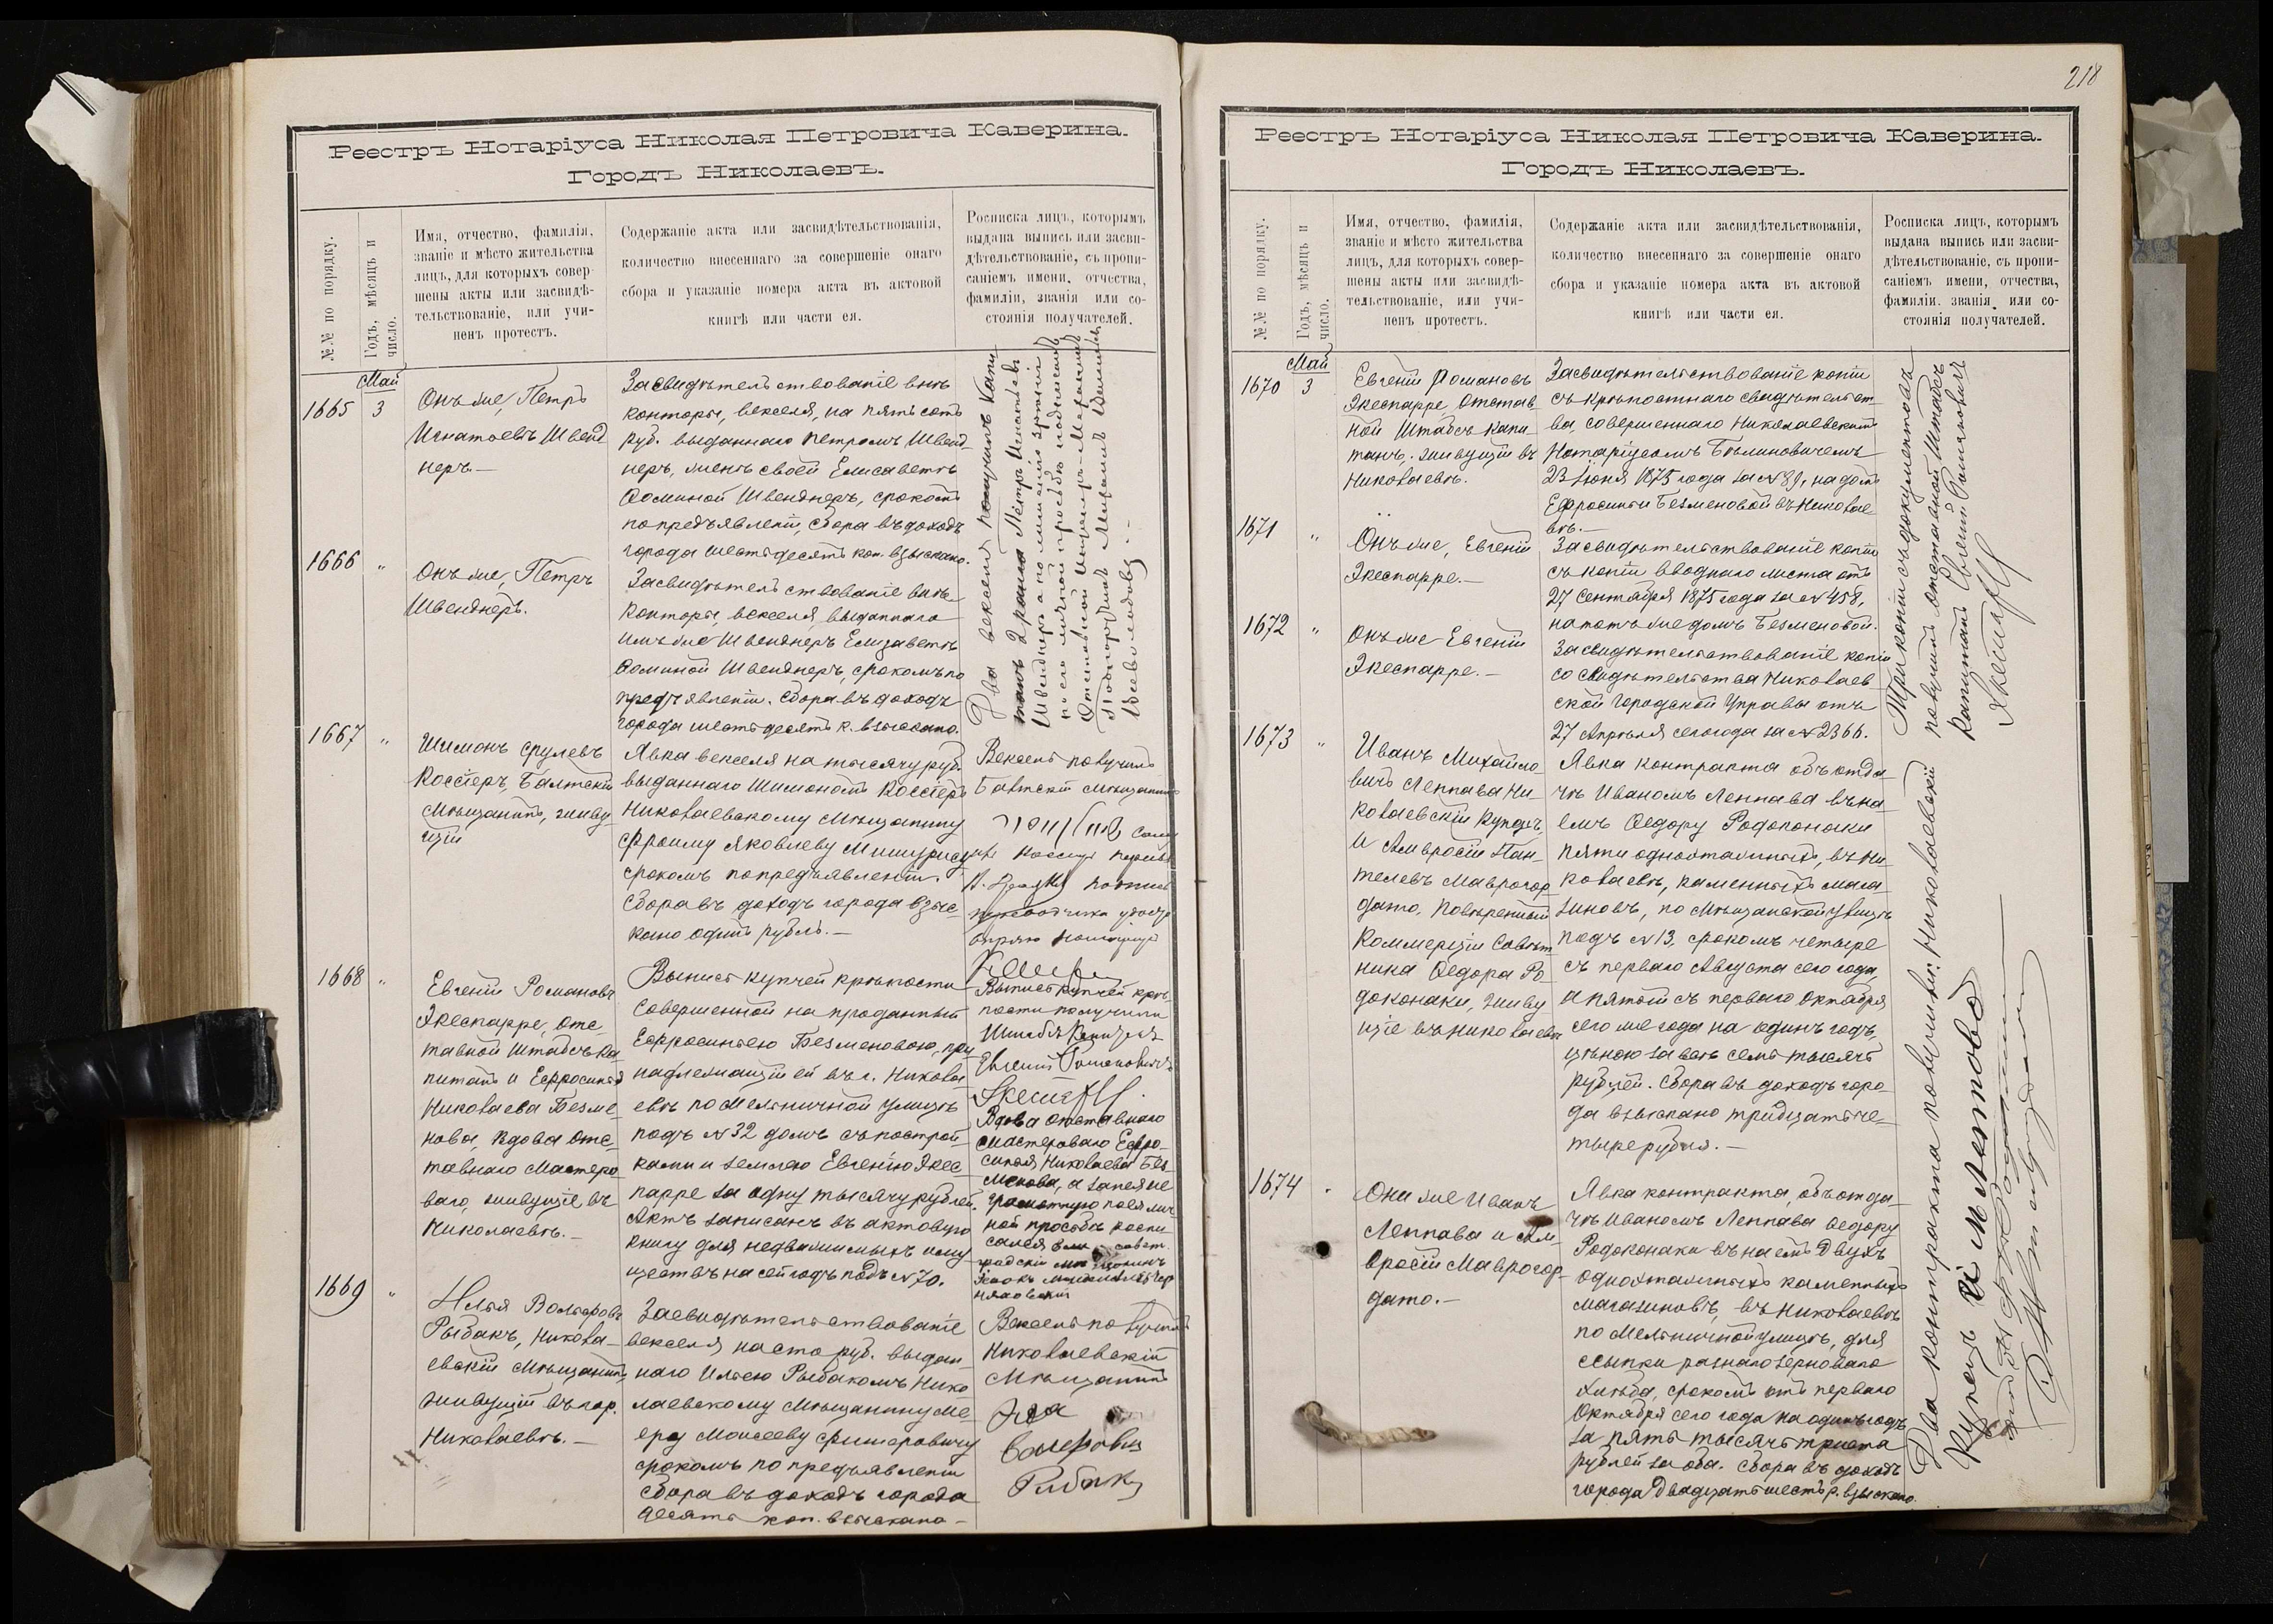 Реестръ Нотаріуса Николая Петровича Каверина.
Городъ Николаевъ.
№№ по порядку.
Годъ, мѣсяцъ и
число.
Имя, отчество, фамилія,
званіе и мѣсто жительства
лицъ, для которыхъ совер-
шены акты или засвидѣ-
тельствованіе, или учи-
ненъ протестъ.
Содержаніе акта или засвидѣтельствованія,
количество внесеннаго за совершеніе онаго
сбора и указаніе номера акта въ актовой
книгѣ или части ея.
Росписка лицъ, которымъ
выдана выпись или засви-
дѣтельствованіе, съ пропи-
саніемъ имени, отчества,
фамиліи, званія или со-
стоянія получателей.
Май
1665 3
Онъ же, Петръ
Игнатьевъ Швенд
неръ.—
Засвидѣтельствованіе внѣ
конторы, векселя, на пятьсотъ
руб. выданнаго Петромъ Швенд-
неръ, женѣ своей Елисаветѣ
Ѳоминой Швенднеръ, срокомъ
по предъявленіи, сбора въ доходъ
города шестьдесятъ коп. взыскано.
1666 "
Онъ же, Петръ
Швенднеръ.
Засвидѣтельствованіе внѣ
конторы, векселя, выданнаго
имъ же Швенднеръ Елизаветѣ
Ѳоминой Швенднеръ, срокомъ по
предъявленіи. Сбора въ доходъ
города шестьдесятъ к. взыскано.
Два векселя получилъ Капи-
танъ 2 ранга Петръ Игнатьевъ
Швенднеръ а по
его личной просьбѣ подписалъ
Отставной
Подпоручикъ
1667 "
Шимонъ Срулевъ
Коссіеръ, Балтскій
Мѣщанинъ, живу
щій
Явка векселя на тысячу руб.
выданнаго Шимономъ Коссіеръ
Николаевскому Мѣщанину
Фроиму Яковлеву
срокомъ по предъявленіи.
Сбора въ доходъ города взыс-
кано одинъ рубль.—
Вексель получилъ
Балтскій Мѣщанинъ
1668 "
Евгеній Романовъ
Экеспарре, Отс
тавной Штабсъ Ка
питанъ и Ефросинья
Николаева Безме
нова, вдова Отс
тавнаго Мастеро
ваго, живущіе въ
Николаевѣ.—
Выпись купчей крѣпости
Совершенной на проданный
Ефросиньею Безменовою, при
надлежащій ей въ г. Никола
евѣ по Мельничной улицѣ
подъ № 32 домъ съ построй
ками и землею Евгенію Экес
парре за одну тысячу рублей.
Актъ записанъ въ актовую
книгу для недвижимыхъ иму
ществъ на сей годъ подъ № 70.
Выпись купчей крѣ
пости получили
Штабсъ Капитанъ
Евгеній Романовичъ
Вдова Отставнаго
Мастероваго Ефро
синья Николаева Без
менова, а за нея не
грамотную по ея лич
ной просьбѣ распи
сался
1669 "
Илья Вольфовъ
Рыбакъ, Никола-
евскій Мѣщанинъ,
живущій въ гор.
Николаевѣ.—
Засвидѣтельствованіе
векселя на сто руб. выдан-
наго Ильею Рыбакомъ Нико
лаевскому Мѣщанину Ме
еру Моисееву Фишеровичу
срокомъ по предъявленіи
Сбора въ доходъ города
десять коп. взыскано—
Вексель получилъ
Николаевскій
Мѣщанинъ
218
Реестръ Нотаріуса Николая Петровича Каверина.
Городъ Николаевъ.
№№ по порядку.
Годъ, мѣсяцъ и
число.
Имя, отчество, фамилія,
званіе и мѣсто жительства
лицъ, для которыхъ совер-
шены акты или засвидѣ-
тельствованіе, или учи-
ненъ протестъ.
Содержаніе акта или засвидѣтельствованія,
количество внесеннаго за совершеніе онаго
сбора и указаніе номера акта въ актовой
книгѣ или части ея.
Росписка лицъ, которымъ
выдана выпись или засви-
дѣтельствованіе, съ пропи-
саніемъ имени, отчества,
фамиліи, званія или со-
стоянія получателей.
Май
1670 3
Евгеній Романовъ
Экеспарре, Отстав
ной Штабсъ Капи
танъ, живущій въ
Николаевѣ.
Засвидѣтельствованіе копіи
съ крѣпостнаго свидѣтельст
ва, совершеннаго Николаевскимъ
Нотаріусомъ Бѣлиновичемъ
23 Іюня 1875 года за № 89, на домъ
Ефросиньи Безменовой въ Николае
вѣ.—
1671 "
Онъ же, Евгеній
Экеспарре.—
Засвидѣтельствованіе копіи
съ копіи вводнаго листа отъ
27 Сентября 1875 года за № 458,
на тотъ же домъ Безменовой.
1672 "
Онъ же Евгеній
Экеспарре.—
Засвидѣтельствованіе копіи
со свидѣтельства Николаев
ской Городской Управы отъ
27 Апрѣля сего года за № 2366.
Три копіи съ документовъ
получилъ отставной Штабсъ
Капитанъ Евгеній Романовичъ
1673 "
Иванъ Михайло-
вичъ Леппава Ни-
колаевскій Купецъ,
и Амвросій Пан-
телевъ Маврогор-
дато, Повѣренный
Коммерціи Совѣт
ника Ѳедора Ро
доконаки, живу
щіе въ Николаевѣ
Явка контракта объ отда-
чѣ Иваномъ Леппава въ на-
емъ Ѳедору Родоконаки
пяти одноэтажныхъ, въ Ни
колаевѣ, каменныхъ мага
зиновъ, по Мѣщанской улицѣ
подъ № 13, срокомъ четыре
съ перваго Августа сего года,
а пятый съ перваго Октября
сего же года на одинъ годъ,
цѣною за всѣ семь тысячъ
рублей. Сбора въ доходъ горо-
да взыскано тридцать че-
тыре рубля.—
1674 "
Они же Иванъ
Леппава и Ам-
вросій Маврогор-
дато.—
Явка контракта, объ отда-
чѣ Иваномъ Леппава Ѳедору
Родоконаки въ наемъ двухъ
одноэтажныхъ каменныхъ
магазиновъ, въ Николаевѣ
по Мельничной улицѣ, для
ссыпки разнаго зерноваго
хлѣба, срокомъ отъ перваго
Октября сего года на одинъ годъ
за пять тысячъ триста
рублей за оба. Сбора въ доходъ
города двадцать шесть р. взыскано.
Два контракта получили: Николаевскій
Купецъ